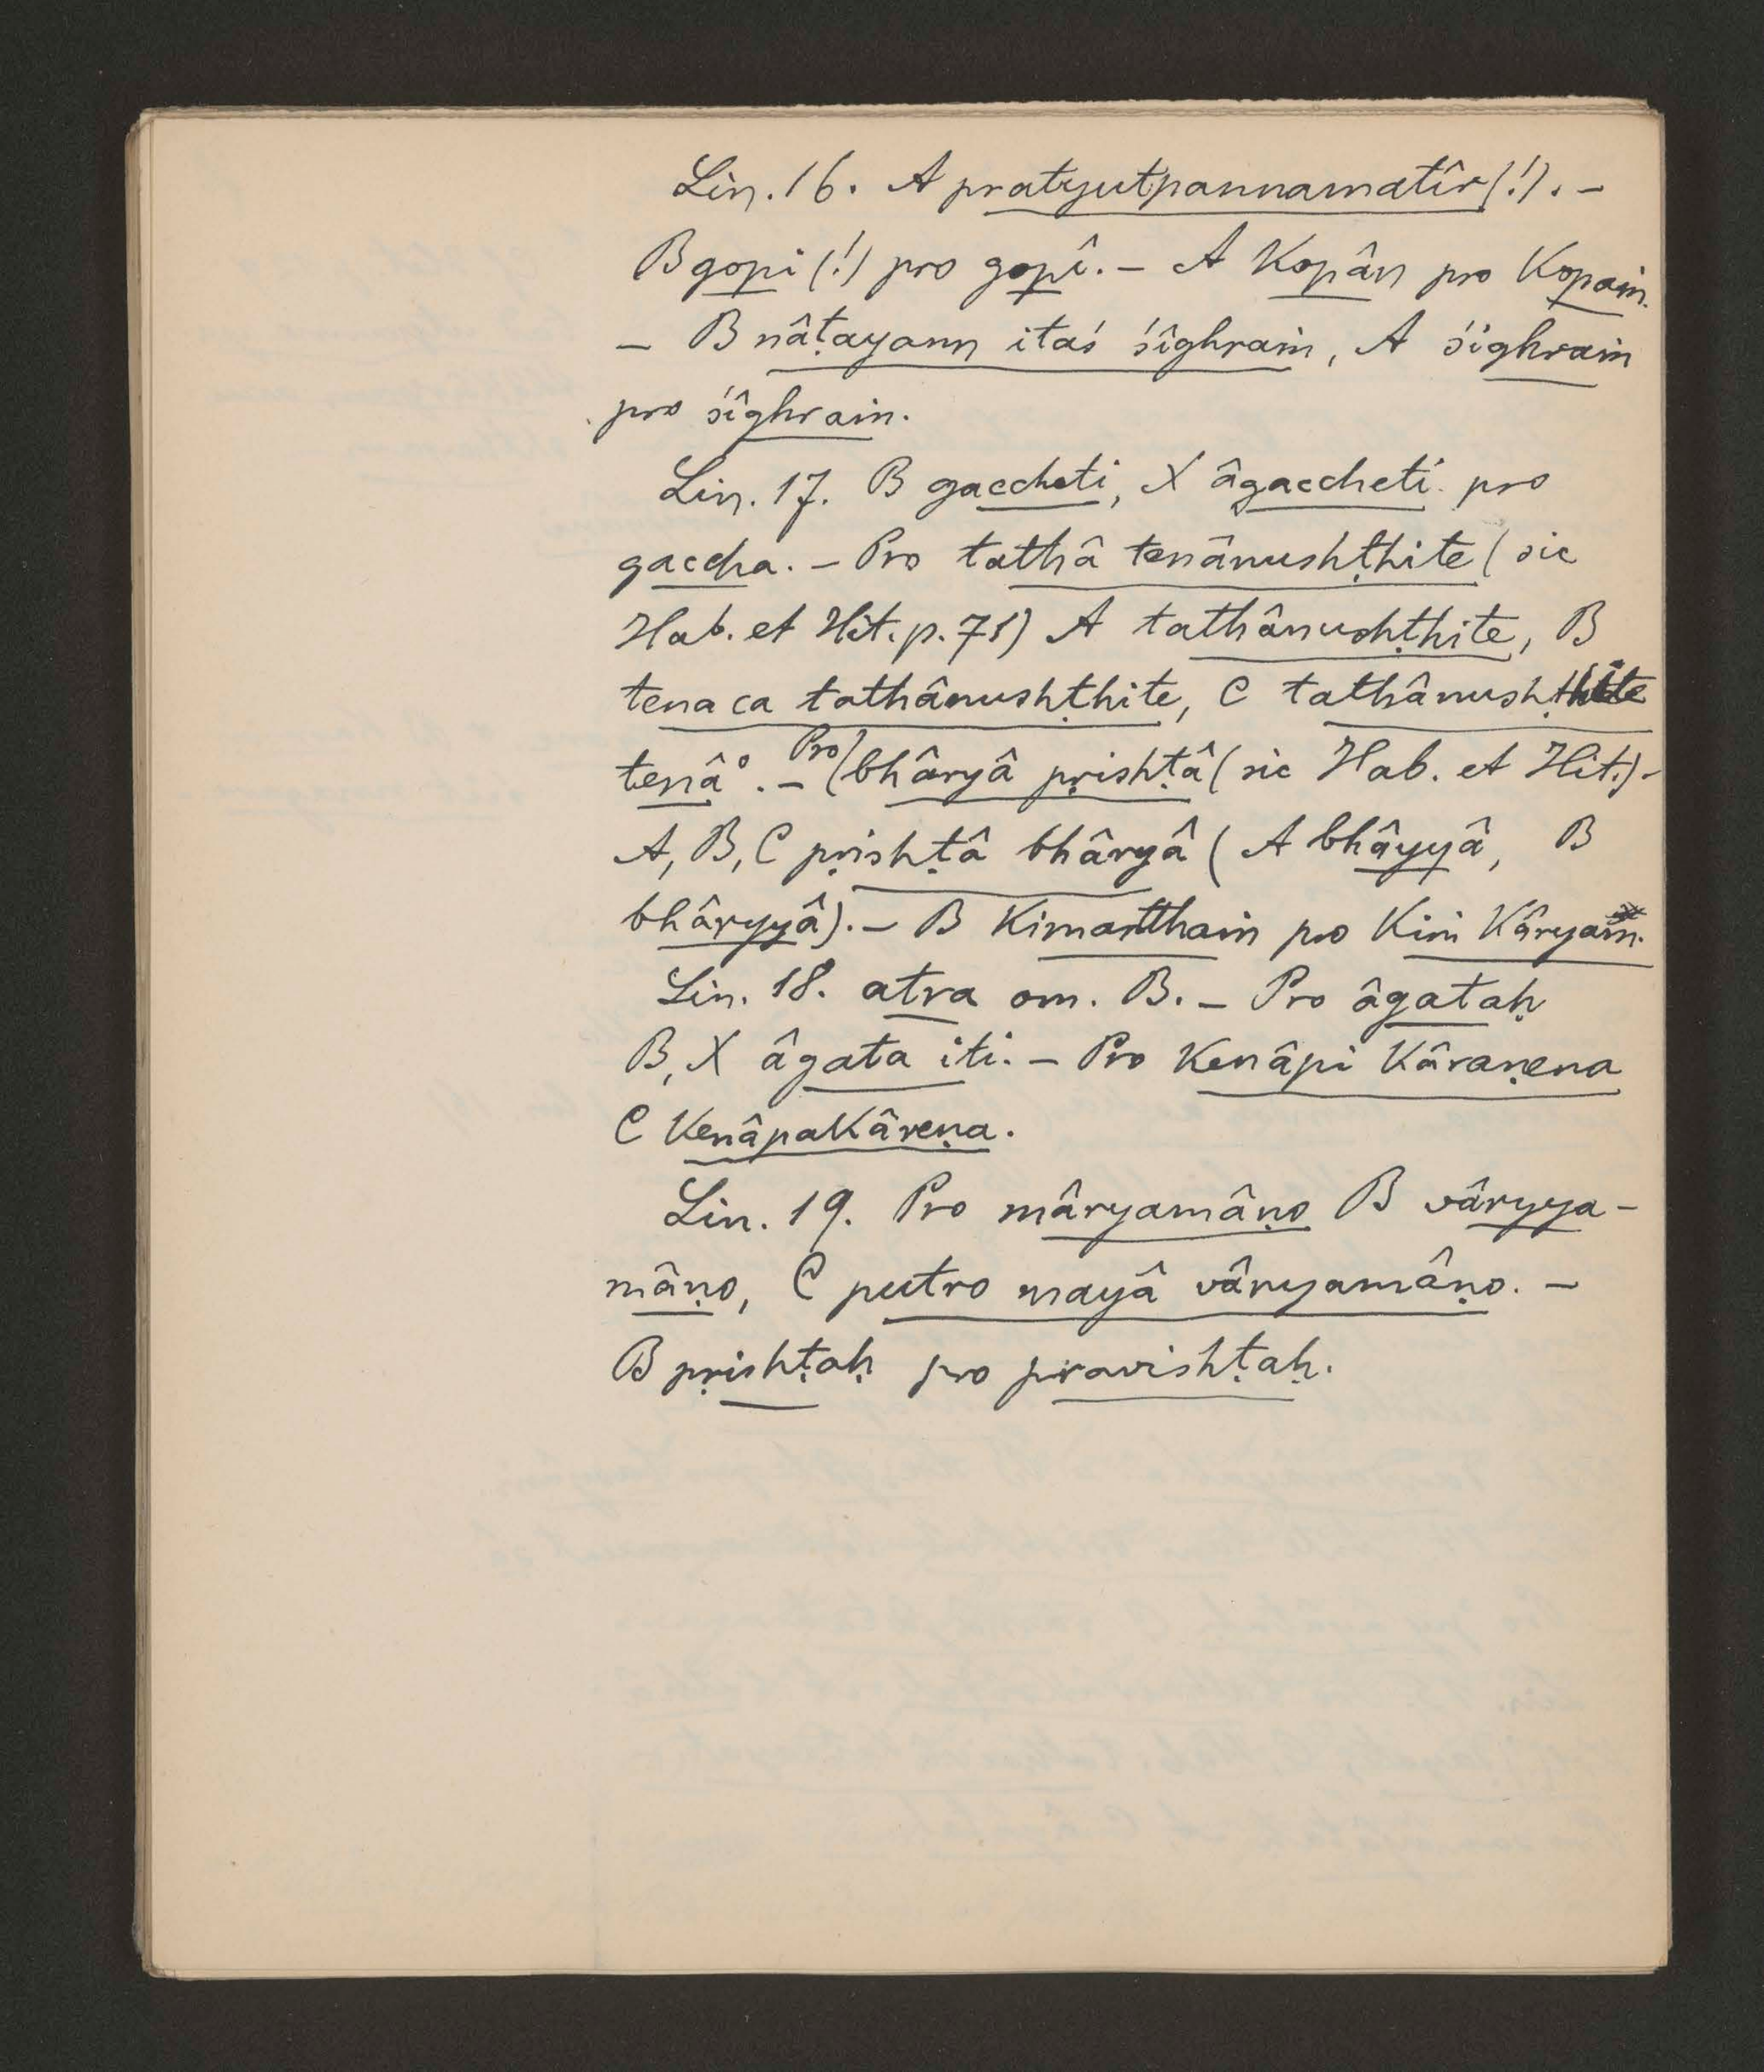 Lin. 16. A pratyutpannamatîr (!). –
B gopi (!) pro gopî. – A kopân pro kopaṁ.
– B nâṭayann itaś śîghraṁ, A śighraṁ
pro śîghraṁ.
Lin. 17. B gaccheti, X âgaccheti pro
gaccha. – Pro tathâ tenânushṭhite (sic
Hab. et Hit. p. 71) A tathânushṭhite, B
tena ca tathânushṭhite, C tathânushṭhite
tenâ°. – Pro bhâryâ pṛishṭâ (sic Hab. et Hit.) –
A, B, C pṛishṭâ bhâryâ (A bhâyyâ, B
bhâryyâ). – B kimartthaṁ pro kiṁ kâryaṁ.
Lin. 18. atra om. B. – Pro âgataḥ
B, X âgata iti. – Pro kenâpi kâraṇena
C kenâpakâreṇa.
Lin. 19. Pro mâryamâṇo B vâryya-
mâṇo, C putro mayâ vâryamâṇo. –
B pṛishṭaḥ pro pravishṭaḥ.